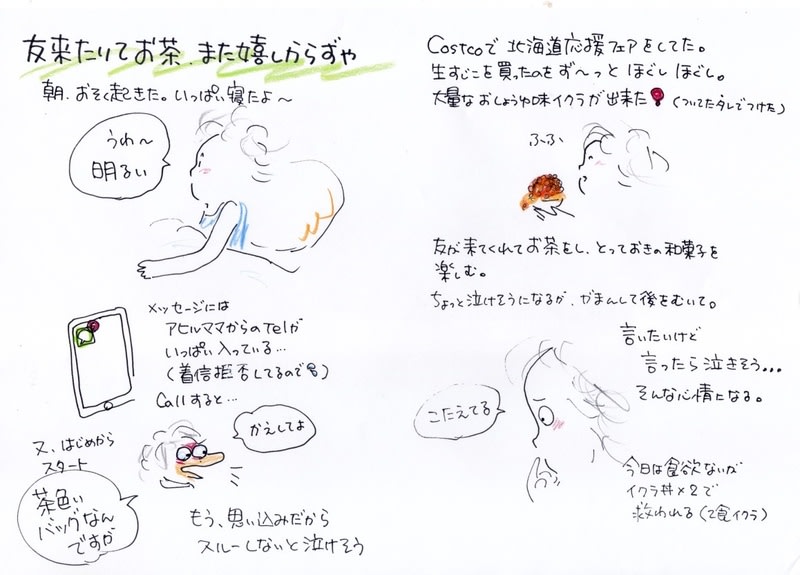 友来たりてお茶、また嬉しからずや
朝、おそく起きた。いっぱい寝たよ～
うわ～
明るい
メッセージには
アヒルママからのTelが
いっぱい入っている…
(着信拒否してるので)
Callすると…
かえしてよ
又、はじめから
スタート
茶色い
バッグなん
ですが
もう、思い込みだから
スルーしないと泣けそう
Costcoで北海道応援フェアをしてた。
生すじこを買ったのをず～っとほぐしほぐし。
大量なおしょうゆ味イクラが出来た(ついてたタレでつけた)
ふふふ
友が来てくれてお茶をし、とっておきの和菓子を
楽しむ。
ちょっと泣けそうになるが、がまんして後をむいて。
言いたいけど
言ったら泣きそう…
そんな心情になる。
こたえてる
今日は食欲ないが
イクラ丼×2で
救われる(で食イクラ)